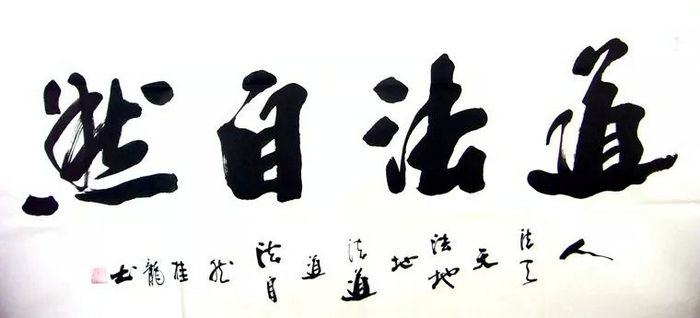 道法自然
人法天天法地地法道道法自然桂龍书